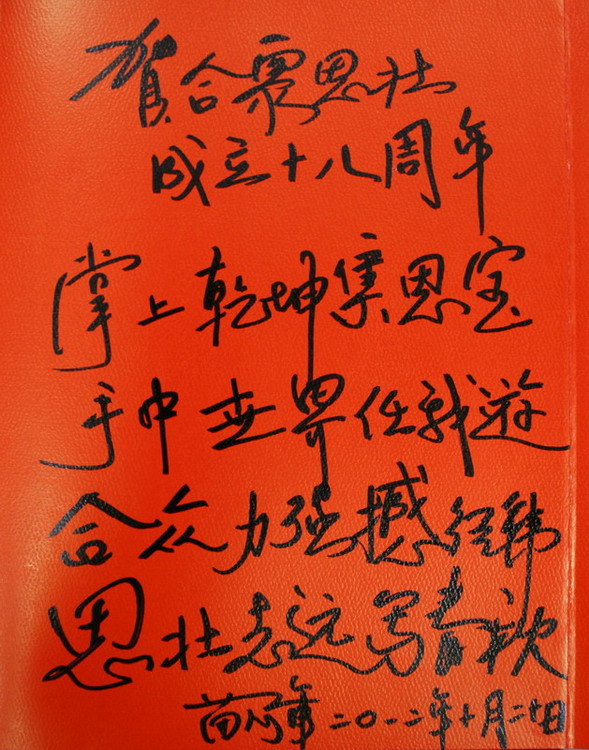 賀合眾思壮
成立十八周年
掌上乾坤集思宝
手中世界任我遊
合众力强撼经纬
思壮志远写春秋
二〇一二年十月二十日